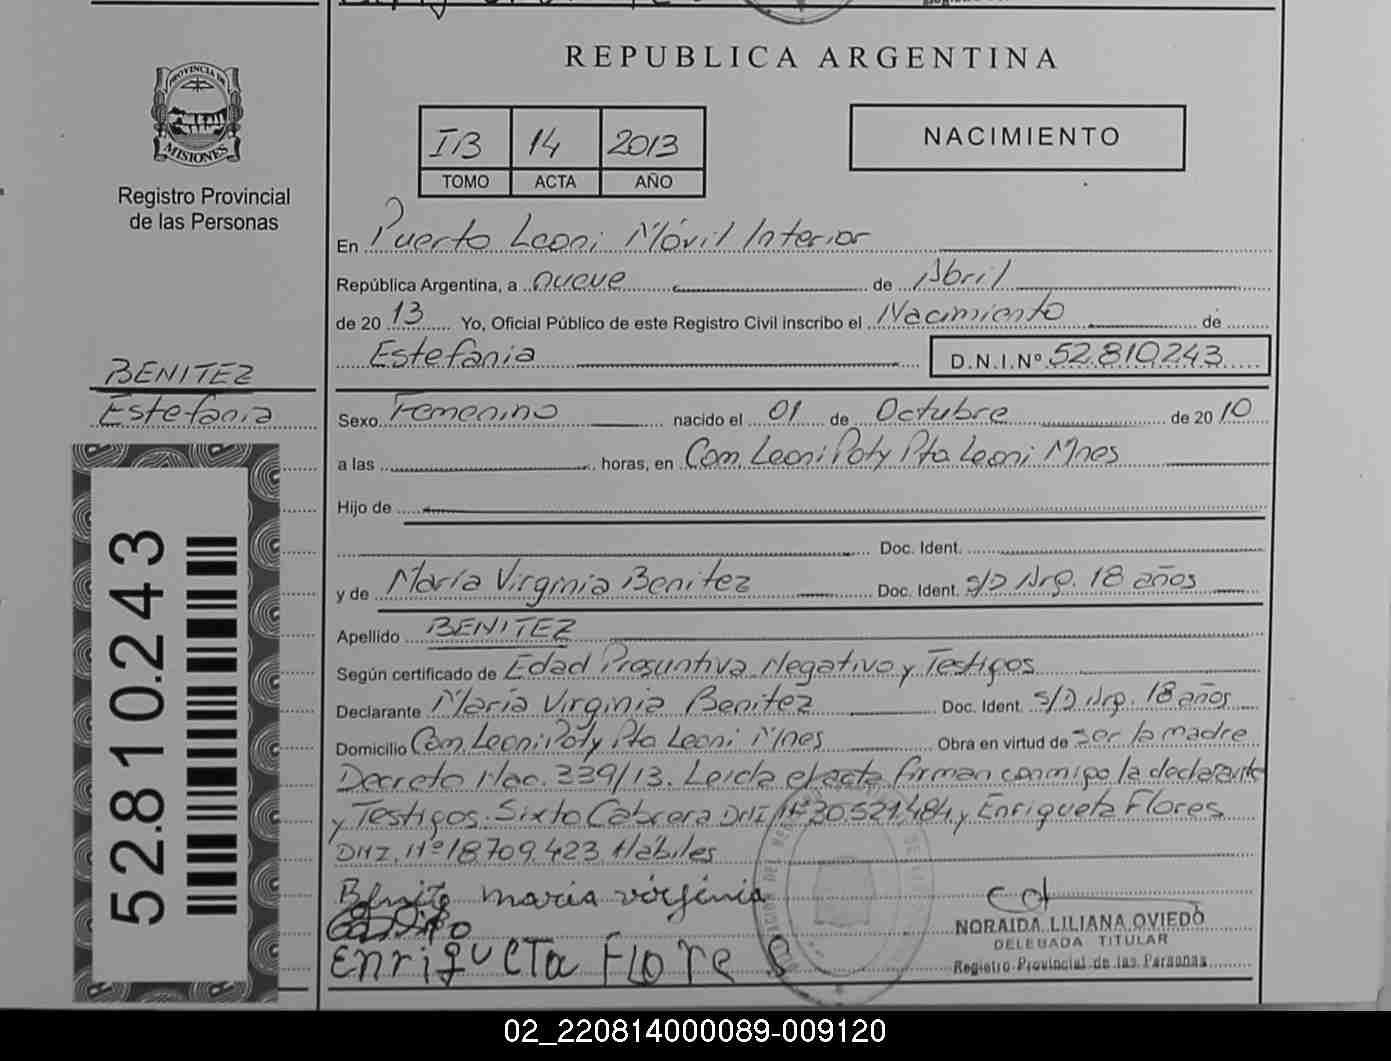 PROVINCIA DE
MISIONES
Registro Provincial
de las Personas
BENITEZ
Estefania
52.810.243
REPUBLICA ARGENTINA
IB 14 2013
TOMO ACTA AÑO
NACIMIENTO
En Puerto Leoni Móvil Interior
República Argentina, a nueve de Abril
de 2013 Yo, Oficial Público de este Registro Civil inscribo el Nacimiento de
Estefania D.N.I.Nº 52.810.243
Sexo Femenino nacido el 01 de Octubre de 2010
a las horas, en Com. Leoni Poty Pto Leoni Mnes
Hijo de
Doc. Ident.
y de María Virginia Benitez Doc. Ident. s/D Arg. 18 años
Apellido BENITEZ
Según certificado de Edad Presuntiva Negativo y Testigos
Declarante María Virginia Benitez Doc. Ident. s/D Arg. 18 años
Domicilio Com. Leoni Poty Pto Leoni Mnes Obra en virtud de Ser la madre
Decreto Nac. 339/13. Leida el acta firman conmigo la declarante
y Testigos. Sixto Cabrera DNI Nº 30.521.484 y Enriqueta Flores
DNI. Nº 18.709.423 Hábiles
Benite maria virginia
Enriqueta Flores
NORAIDA LILIANA OVIEDO
DELEGADA TITULAR
Registro Provincial de las Personas
02_220814000089-009120